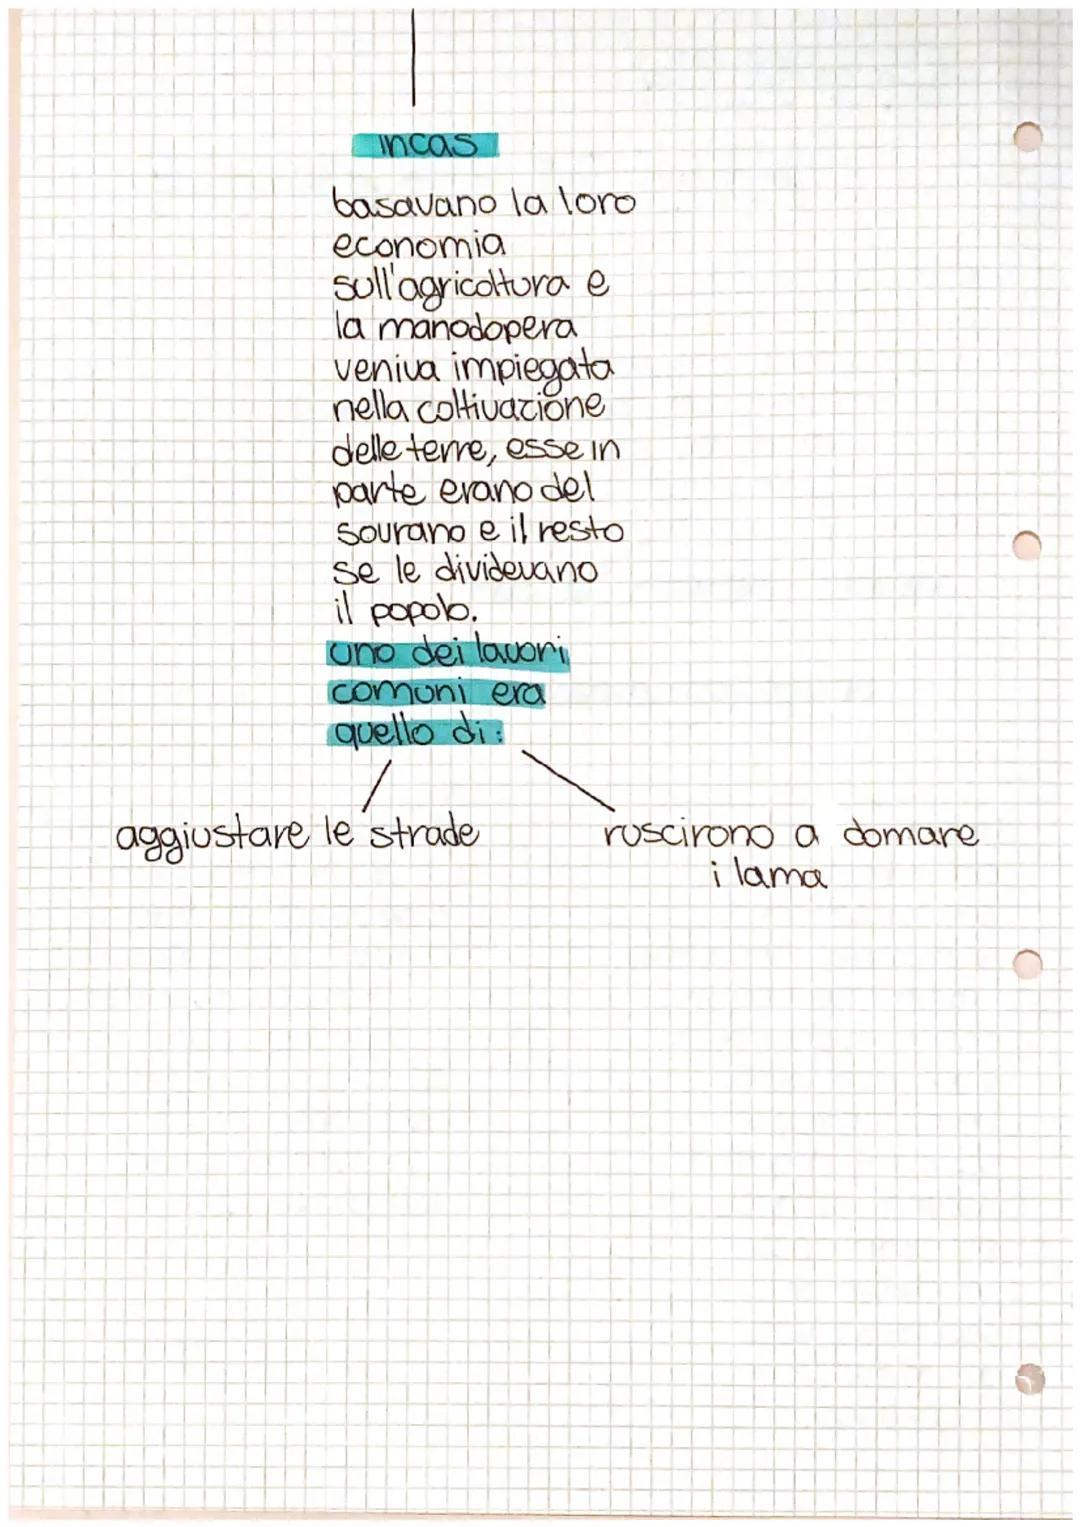 incas
basavano la loro
economia
sull'agricoltura e
la manodopera
veniva impiegata
nella coltivazione
delle terre, esse in
parte erano del
sovrano e il resto
se le dividevano
il popolo.
uno dei lavori
comuni era
quello di:
aggiustare le strade
ruscirono a domare
i lama